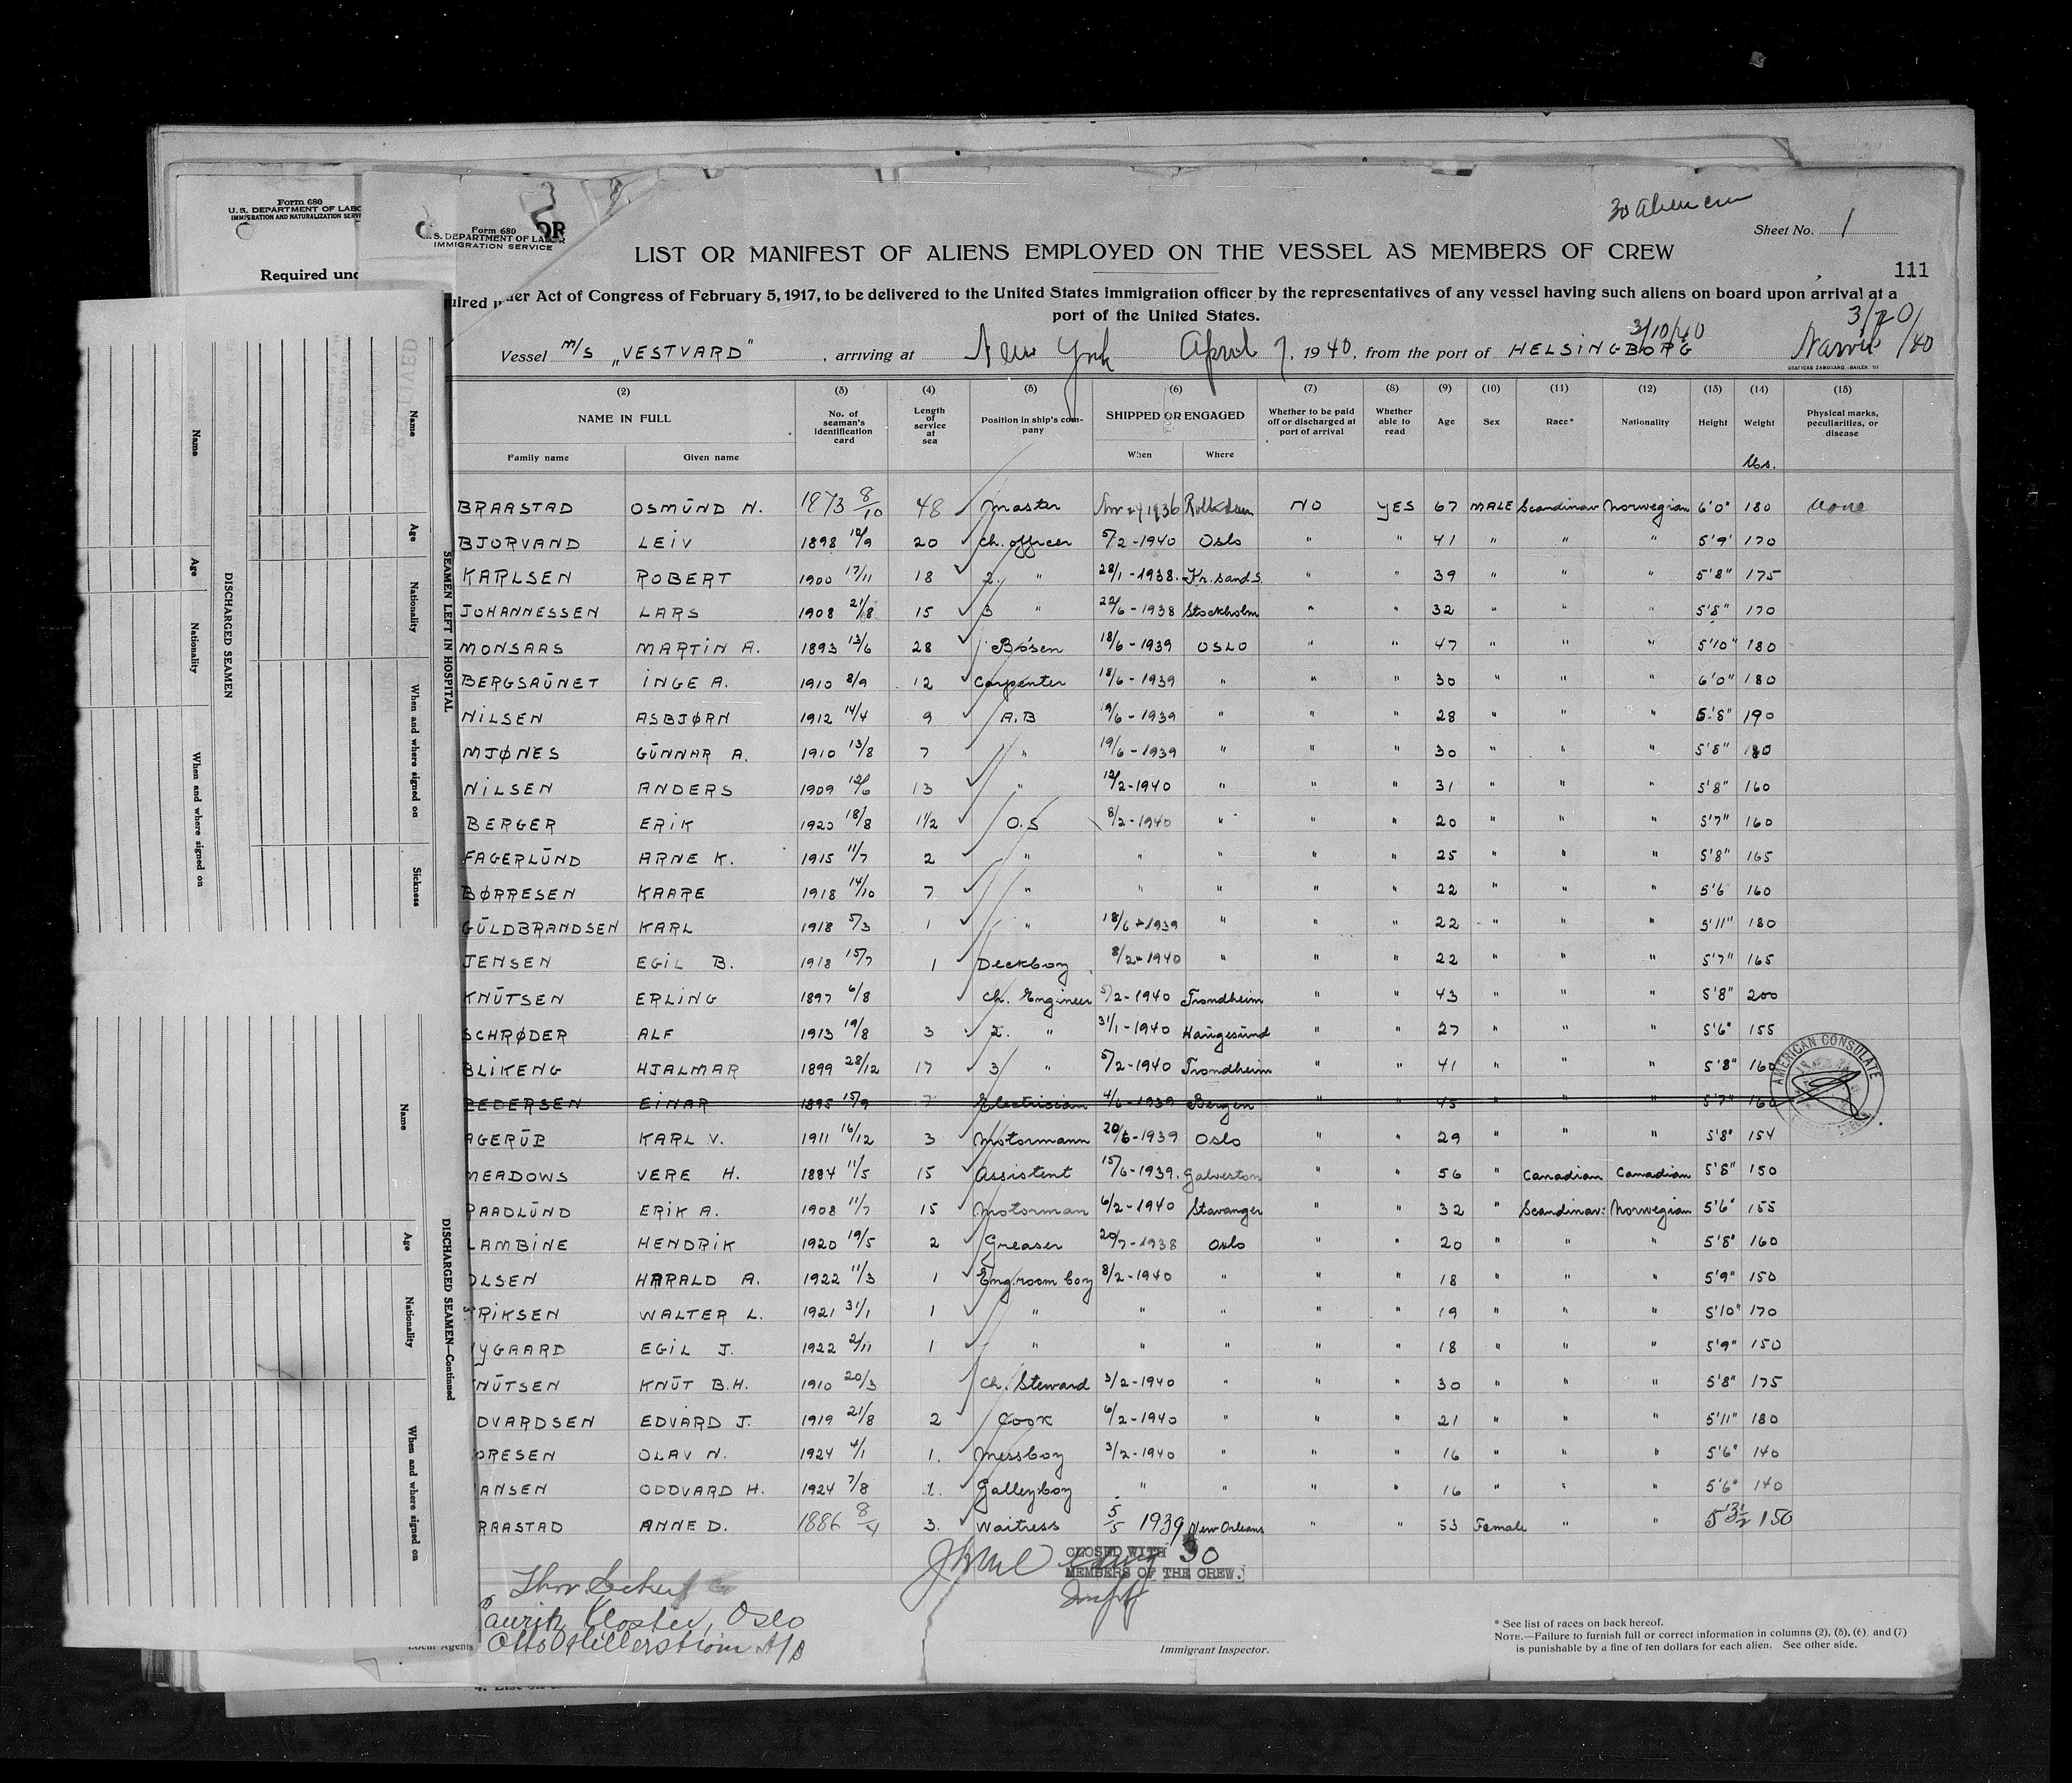 Form 680
U. S. DEPARTMENT OF LABO
IMMIGRATION AND NATURALIZATION SERVI
Required und
Form 680
U. S. DEPARTMENT OF LABOR
IMMIGRATION SERVICE
30 alien crew
Sheet No. 1
LIST OR MANIFEST OF ALIENS EMPLOYED ON THE VESSEL AS MEMBERS OF CREW
111
uired under Act of Congress of February 5, 1917, to be delivered to the United States immigration officer by the representatives of any vessel having such aliens on board upon arrival at a
port of the United States.
3/10/40
Vessel M/S „VESTVARD" , arriving at New York April 7, 1940, from the port of HELSINGBORG Narvik
(2) (3) (4) (5) (6) (7) (8) (9) (10) (11) (12) (13) (14) (15)
NAME IN FULL No. of seaman's identification card Length of service at sea Position in ship's company SHIPPED OR ENGAGED Whether to be paid off or discharged at port of arrival Whether able to read Age Sex Race* Nationality Height Weight Physical marks, peculiarities, or disease
Family name Given name When Where lbs.
BRAASTAD OSMŪND N. 1873 8/10 48 Master Nov 24 1936 NO YES 67 MALE Scandinav Norwegian 6'0" 180 None
BJORVAND LEIV 1898 12/9 20 Ch. officer 5/2-1940 Oslo " " 41 " " " 5'9' 170
KARLSEN ROBERT 1900 17/11 18 2. " 28/1-1938. Kr.sand S. " " 39 " " " 5'8" 175
JOHANNESSEN LARS 1908 21/8 15 3 " 22/6-1938 Stockholm " " 32 " " " 5'8" 170
MONSAAS MARTIN A. 1893 13/6 28 Bosen 18/6-1939 OSLO " " 47 " " " 5'10" 180
BERGSAŪNET INGE A. 1910 8/9 12 Carpenter 18/6-1939 " " " 30 " " " 6'0" 180
NILSEN ASBJØRN 1912 14/4 9 A.B 19/6-1939 " " " 28 " " " 5'8" 190
MJØNES GŪNNAR A. 1910 13/8 7 " 19/6-1939 " " " 30 " " " 5'8" 180
NILSEN ANDERS 1909 12/6 13 " 12/2-1940 " " " 31 " " " 5'8" 160
BERGER ERIK 1920 18/8 1 1/2 O.S 8/2-1940 " " " 20 " " " 5'7" 160
FAGERLŪND ARNE K. 1915 11/7 2 " " " " " 25 " " " 5'8" 165
BØRRESEN KAARE 1918 14/10 7 " " " " " 22 " " " 5'6 160
GŪLDBRANDSEN KARL 1918 5/3 1 " 18/6-1939 " " " 22 " " " 5'11" 180
JENSEN EGIL B. 1918 15/7 1 Deckboy 8/2-1940 " " " 22 " " " 5'7" 165
KNŪTSEN ERLING 1897 6/8 Ch. Engineer 5/2-1940 Trondheim " " 43 " " " 5'8" 200
SCHRØDER ALF 1913 19/8 3 2. " 31/1-1940 Haugesund " " 27 " " " 5'6" 155
BLIKENG HJALMAR 1899 28/12 17 3 " 5/2-1940 Trondheim " " 41 " " " 5'8" 160
PEDERSEN EINAR 1895 15/9 7 Electrician 4/6-1939 Bergen " " 45 " " " 5'7" 160
AGERŪP KARL V. 1911 16/12 3 Motormann 20/6-1939 Oslo " " 29 " " " 5'8" 154
MEADOWS VERE H. 1884 11/5 15 Assistent 15/6-1939. Galveston " " 56 " Canadian Canadian 5'8" 150
PAADLŪND ERIK A. 1908 11/7 15 Motorman 6/2-1940 Stavanger " " 32 " Scandinav: Norwegian 5'6" 155
LAMBINE HENDRIK 1920 19/5 2 Greaser 20/7-1938 Oslo " " 20 " " " 5'8" 160
OLSEN HARALD A. 1922 11/3 1 Eng.room boy 8/2-1940 " " " 18 " " " 5'9" 150
RIKSEN WALTER L. 1921 31/1 1 " " " " " 19 " " " 5'10" 170
YGAARD EGIL J. 1922 2/11 1 " " " " " 18 " " " 5'9" 150
NŪTSEN KNŪT B.H. 1910 20/3 Ch. Steward 3/2-1940 " " " 30 " " " 5'8" 175
DVARDSEN EDVARD J. 1919 21/8 2 Cook 6/2-1940 " " " 21 " " " 5'11" 180
ORESEN OLAV N. 1924 4/1 1. Messboy 3/2-1940 " " " 16 " " " 5'6" 140
ANSEN ODDVARD H. 1924 7/8 1. Galleyboy " " " " 16 " " " 5'6" 140
RAASTAD ANNE D. 1886 8/4 3. Waitress 5/5 1939 New Orleans " " 53 Female " " 5'3½ 150
AMERICAN CONSULATE
CLOSED WITH 30
MEMBERS OF THE CREW.
Lauritz Kloster, Oslo
Otto Hillerström A/B
Local Agents
Immigrant Inspector.
* See list of races on back hereof.
NOTE.—Failure to furnish full or correct information in columns (2), (5), (6), and (7)
is punishable by a fine of ten dollars for each alien. See other side.
SEAMEN LEFT IN HOSPITAL
Name
Age
Nationality
When and where signed on
Sickness
DISCHARGED SEAMEN
Name
Age
Nationality
When and where signed on
DISCHARGED SEAMEN—Continued
Name
Age
Nationality
When and where signed on